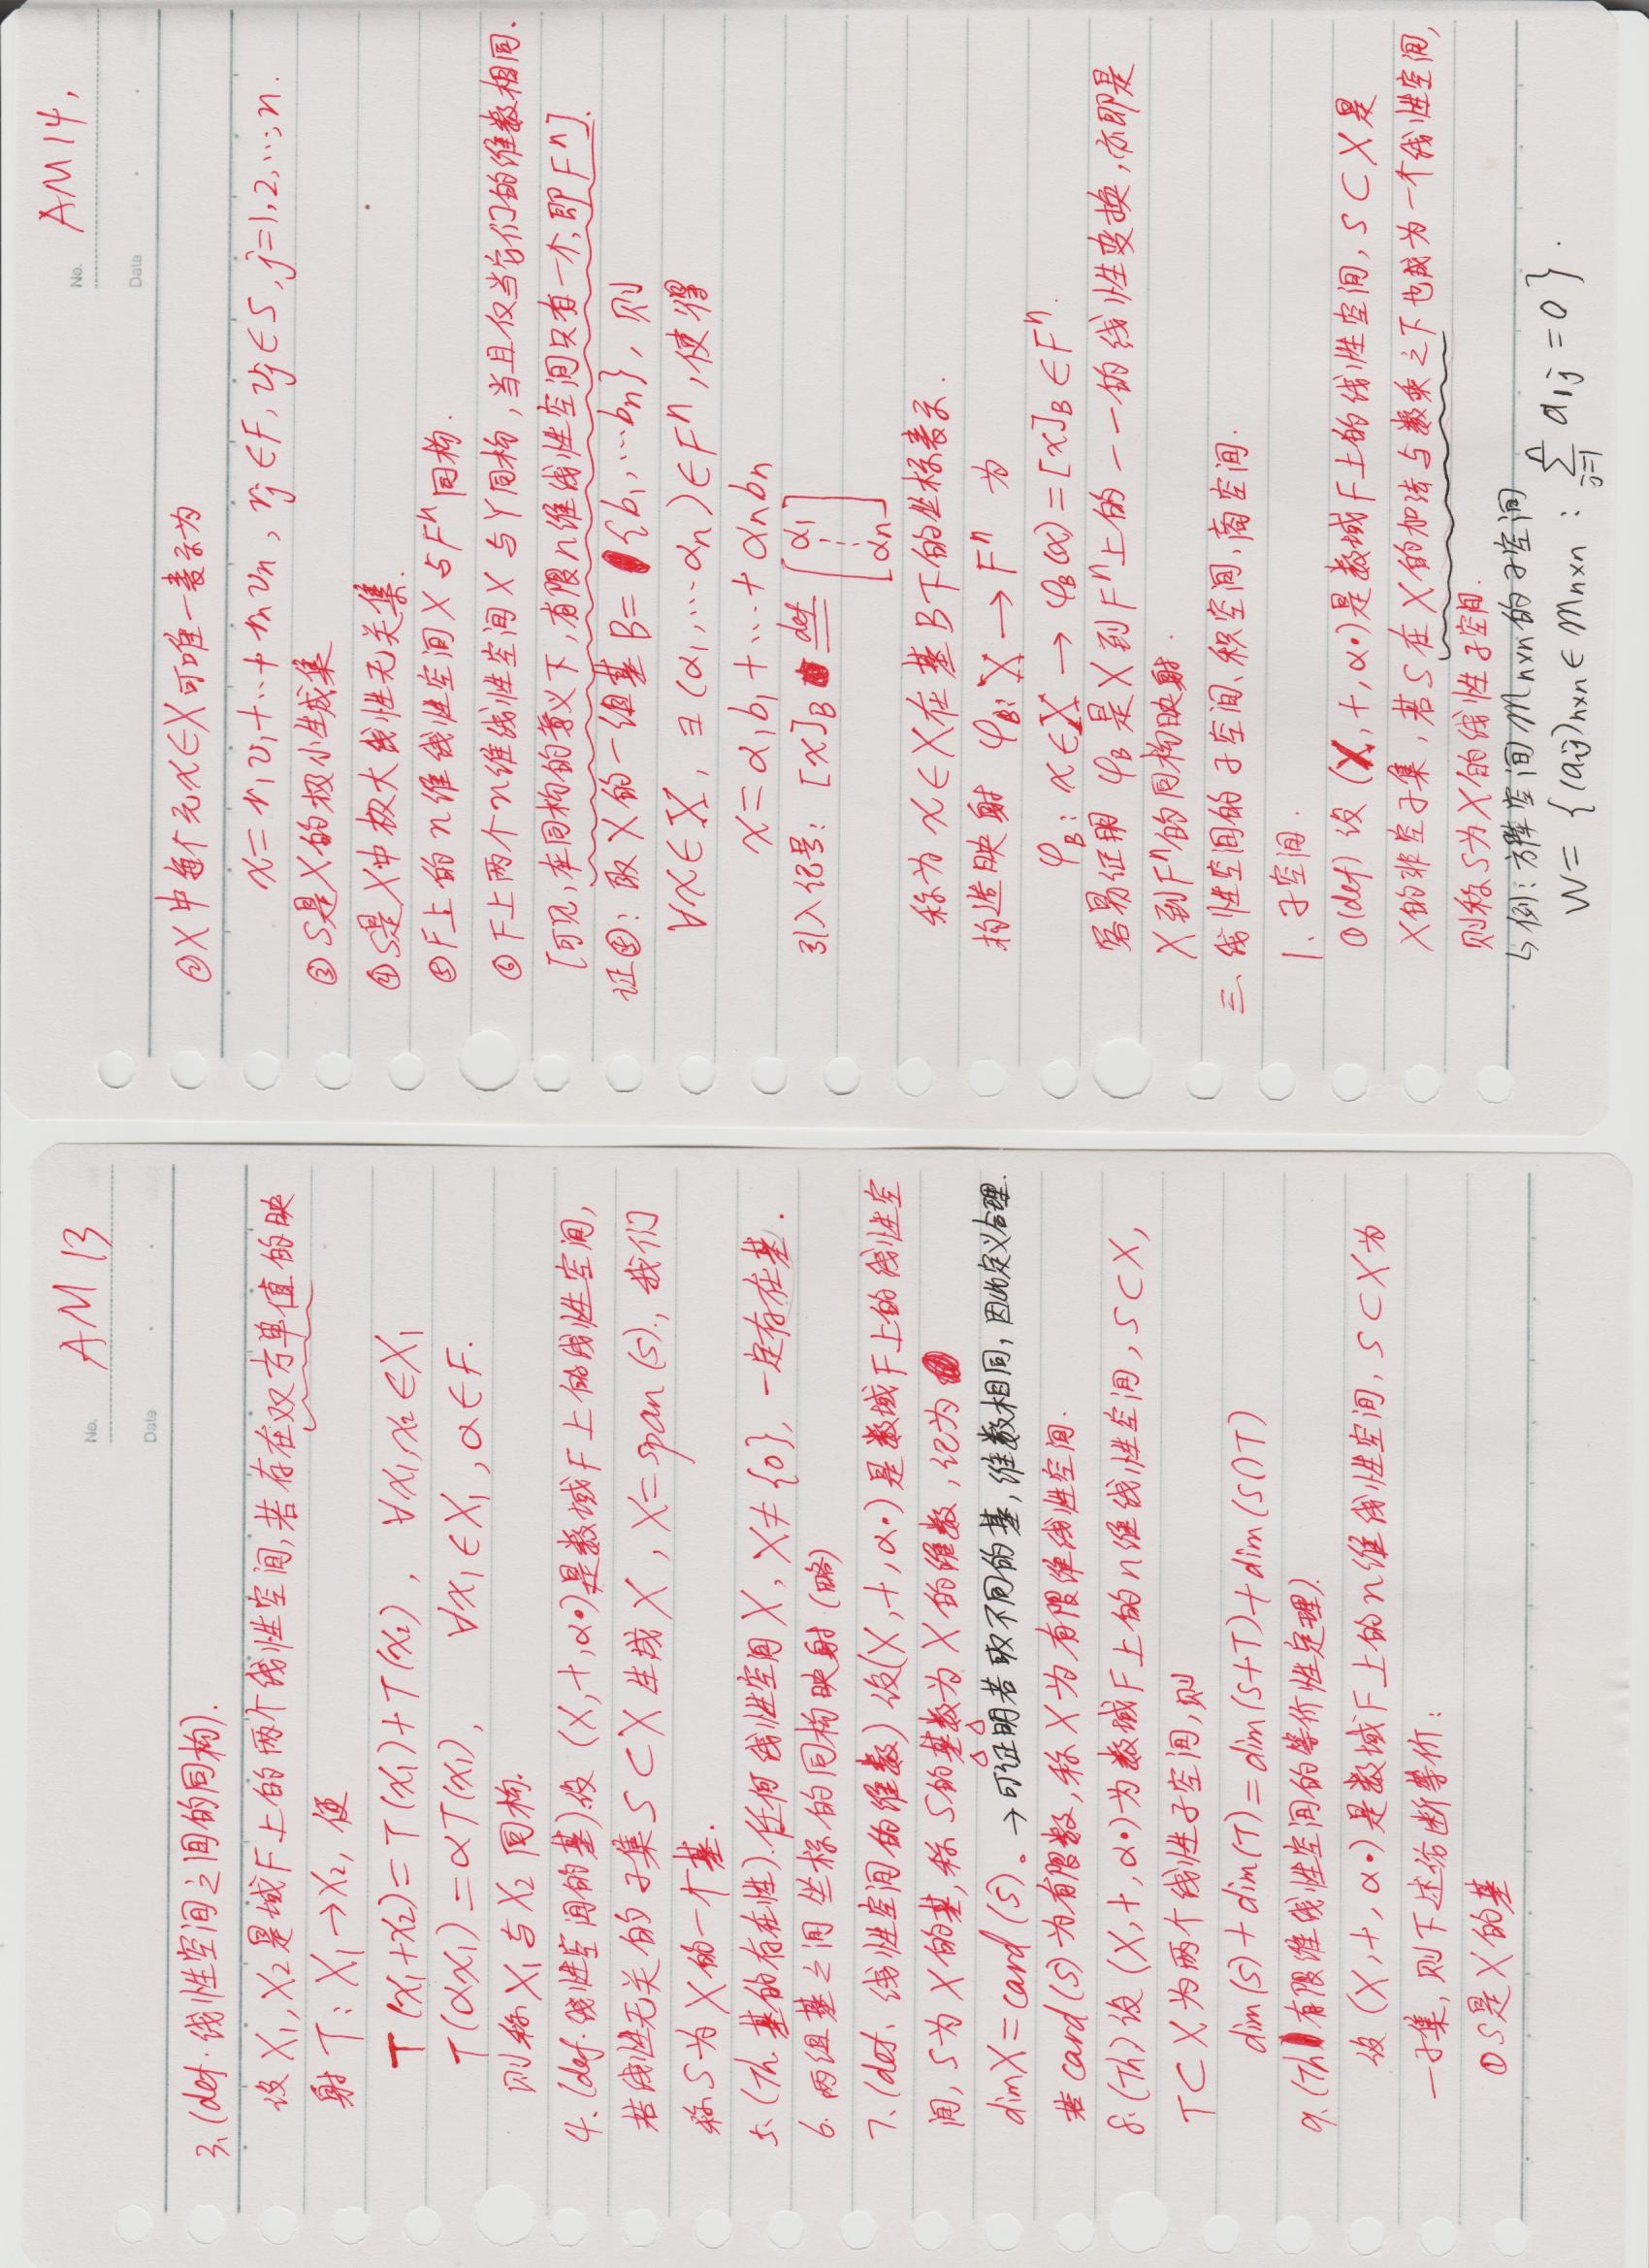 No. AM 13
Date
3、(def. 线性空间之间的同构).
设 X₁, X₂ 是域F上的两个线性空间, 若存在双方单值的映
射 T: X₁→X₂, 使
T(x₁+x₂)=T(x₁)+T(x₂), ∀x₁,x₂∈X₁
T(αx₁)=αT(x₁), ∀x₁∈X₁, α∈F.
则称 X₁与X₂ 同构.
4、(def. 线性空间的基). 设 (X,+,α•)是数域F上的线性空间,
若线性无关的子集 S⊂X 生成X, X=span(S)., 我们
称S为X的一个基.
5、(Th. 基的存在性). 任何线性空间X, X≠{0}, 一定存在基.
6. 两组基之间坐标的同构映射 (略)
7、(def、线性空间的维数) 设(X,+,α•)是数域F上的线性空
间, S为X的基, 称S的基数为X的维数, 记为
dimX=card(S)。→可证明若取不同的基, 维数相同, 因此定义合理.
若card(S)为有限数, 称X为有限维线性空间.
8、(Th) 设(X,+,α•)为数域F上的n维线性空间, S⊂X,
T⊂X为两个线性子空间, 则
dim(S)+dim(T)=dim(S+T)+dim(S∩T)
9、(Th 有限维线性空间的等价性定理).
设(X,+,α•)是数域F上的n维线性空间, S⊂X为
一子集, 则下述论断等价:
①S是X的基
No. AM 14,
Date
②X中每个元x∈X可唯一表示为
x=r₁v₁+…+rₙvₙ, rⱼ∈F, vⱼ∈S, j=1,2,…,n.
③S是X的极小生成集
④S是X中极大线性无关集.
⑤F上的n维线性空间X与Fⁿ同构.
⑥F上两个n维线性空间X与Y同构, 当且仅当它们的维数相同.
[可见, 在同构的意义下, 有限n维线性空间只有一个, 即Fⁿ].
证⑤: 取X的一组基B={b₁,…bₙ}, 则
∀x∈X, ∃(α₁,…αₙ)∈Fⁿ, 使得
x=α₁b₁+…+αₙbₙ
引入记号: [x]_B ≝ [α₁ ⋮ αₙ]
称为x∈X在基B下的坐标表示.
构造映射 φ_B: X→Fⁿ 为
φ_B: x∈X→φ_B(x)=[x]_B∈Fⁿ.
容易证明φ_B是X到Fⁿ上的一一的线性变换, 亦即是
X到Fⁿ的同构映射.
三、线性空间的子空间、积空间, 商空间.
1、子空间.
①(def) 设(X,+,α•)是数域F上的线性空间, S⊂X是
X的非空子集, 若S在X的加法与数乘之下也成为一个线性空间,
则称S为X的线性子空间.
↳例: 方阵空间Mₙₓₙ的子空间
W={(aᵢⱼ)ₙₓₙ∈Mₙₓₙ: ∑ⱼ₌₁ⁿ a₁ⱼ=0}.